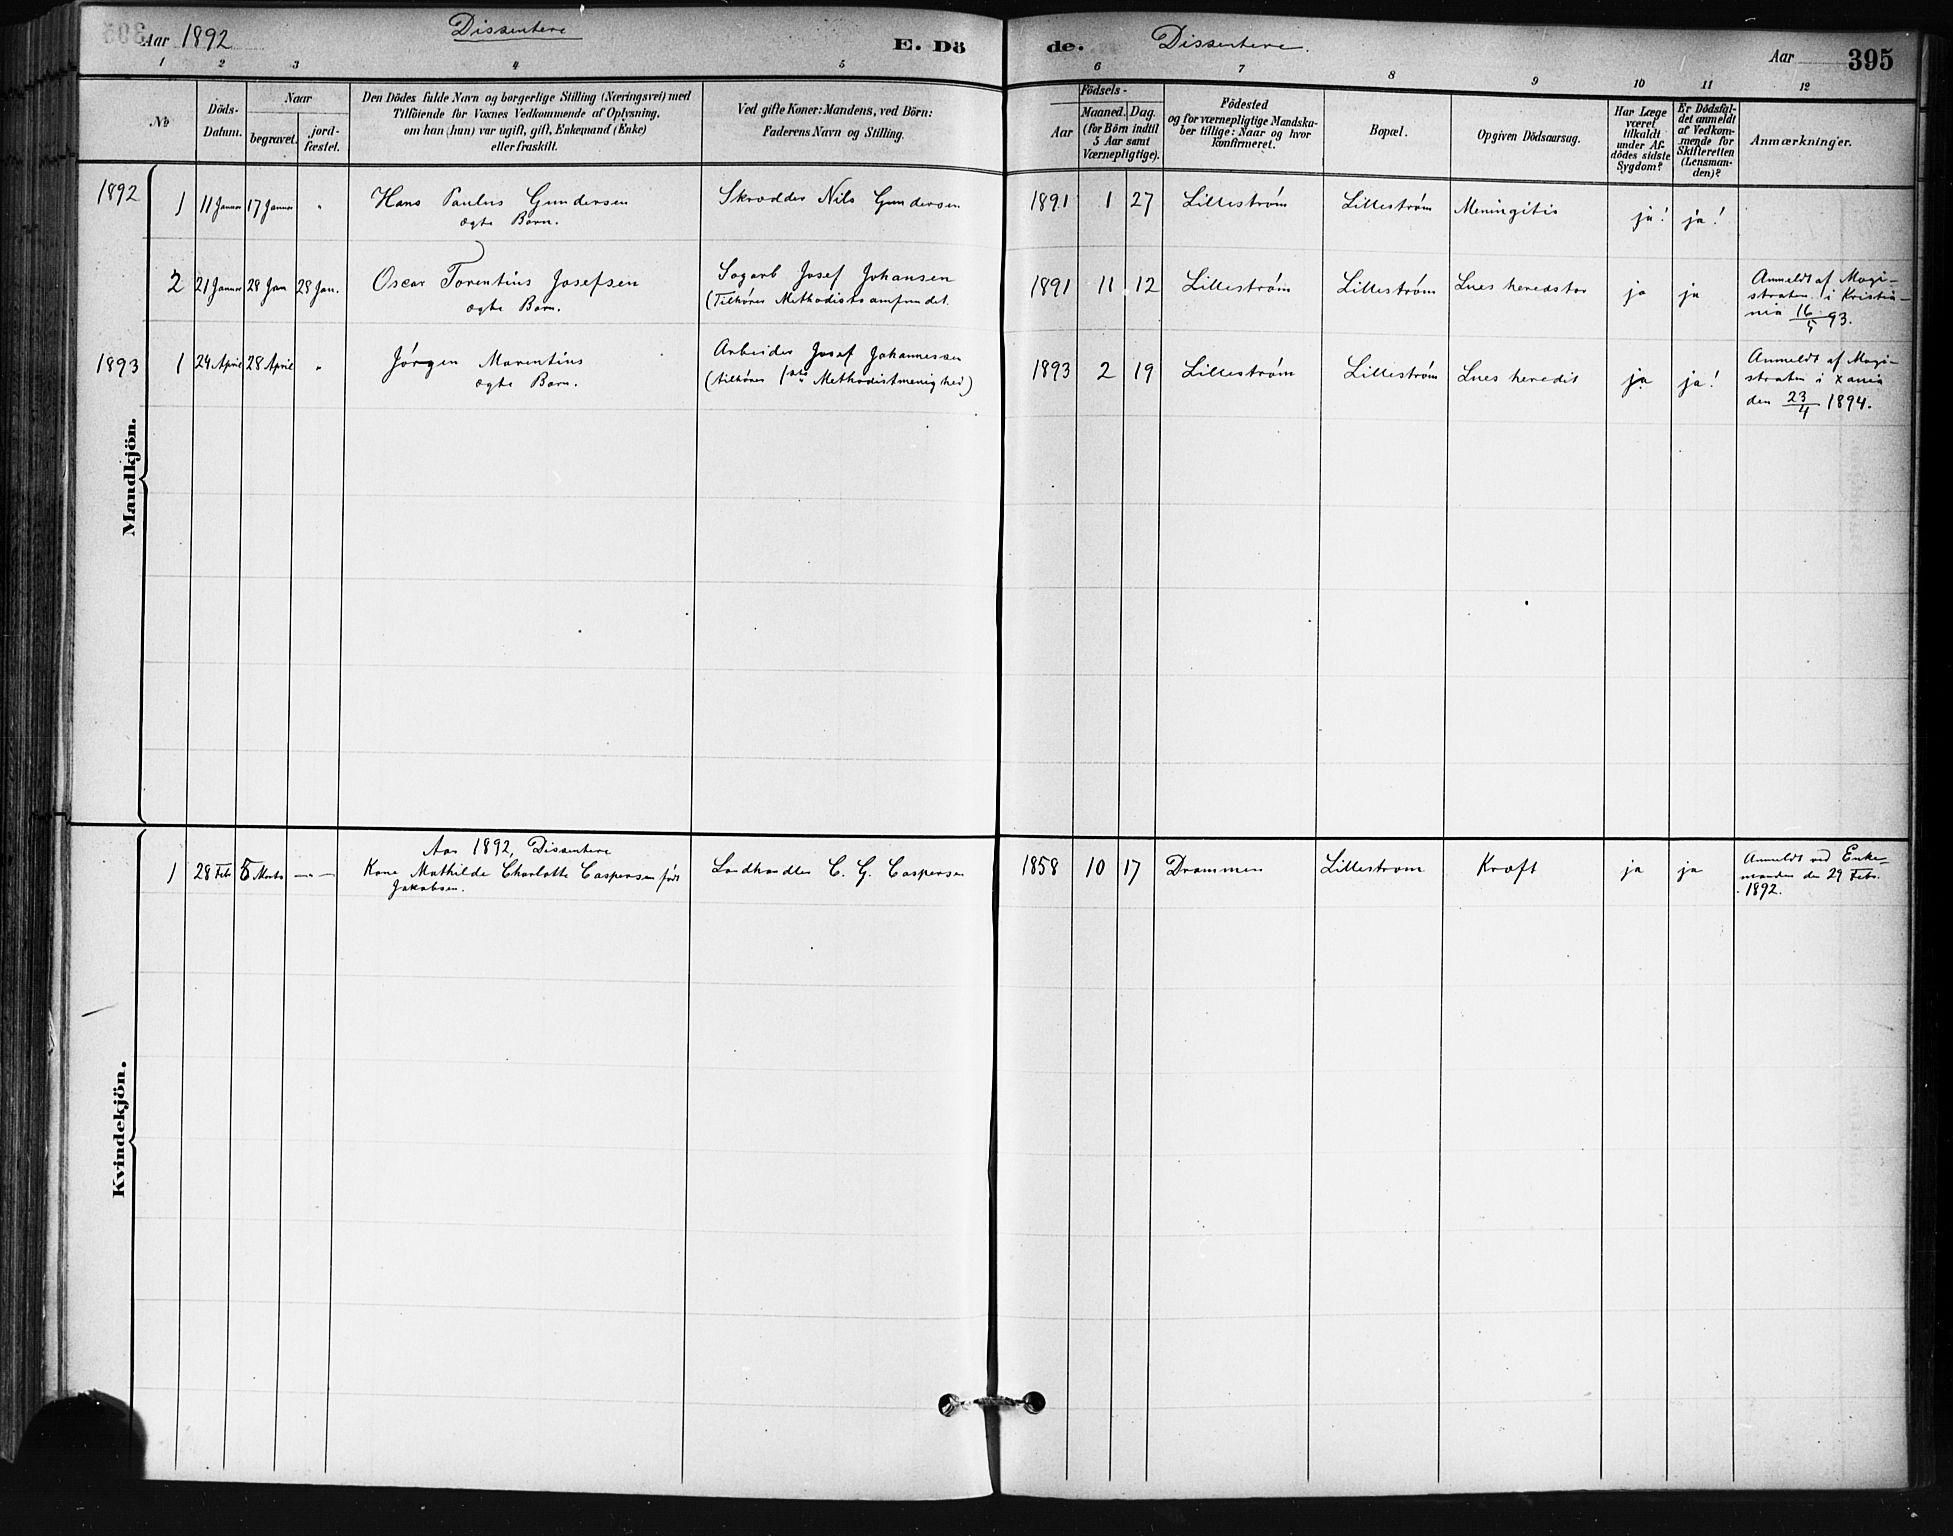 Aar 1892
Dissentere
E. Dö
de.
Dissentere.
Aar
395
1 2 3 4 5 6 7 8 9 10 11 12
No
Döds-Datum.
Naar
begravet.
jord-fæstet.
Den Dödes fulde Navn og borgerlige Stilling (Næringsvei) med
Tilföiende for Voxnes Vedkommende af Oplysning,
om han (hun) var ugift, gift, Enkemand (Enke)
eller fraskilt.
Ved gifte Koner: Mandens, ved Börn:
Faderens Navn og Stilling.
Födsels-
Aar
Maaned. Dag.
(for Börn indtil
5 Aar samt
Værnepligtige).
Födested
og for værnepligtige Mandska-
ber tillige: Naar og hvor
konfirmeret.
Bopæl.
Opgiven Dödsaarsag.
Har Læge
været
tilkaldt
under Af-
dödes sidste
Sygdom?
Er Dödsfal-
det anmeldt
af Vedkom-
mende for
Skifteretten
(Lensman-
den)?
Anmærkninger.
Mandkjön.
1892
1 11 Januar 17 Januar " Hans Paulus Gundersen Skrædder Nils Gundersen 1891 1 27 Lillestrøm Lillestrøm Meningitis ja! ja!
ægte Barn.
2 21 Januar 28 Jan 28 Jan. Oscar Torentius Josefsen Sagarb Josef Johansen 1891 11 12 Lillestrøm Lillestrøm Lues ja ja Anmeldt af Magi-
ægte Barn. (Tilhører Methodistsamfundet. straten i Kristia-
nia 16/5 93.
1893 1 24 April 28 April " Jørgen Marentius Arbeider Josef Johannessen 1893 2 19 Lillestrøm Lillestrøm Lues heredit ja ja! Anmeldt af Magi-
ægte Barn. (tilhører 1ste Methodistmenighed) straten i Xania
den 23/4 1894.
Kvindekjön.
Aar 1892, Dissentere
1 28 Feb 5 Marts — Kone Mathilde Charlotte Caspersen født Landhandler C. G. Caspersen 1858 10 17 Drammen Lillestrøm Kræft ja ja Anmeldt ved Enke-
Jakobsen. manden den 29 Febr.
1892.